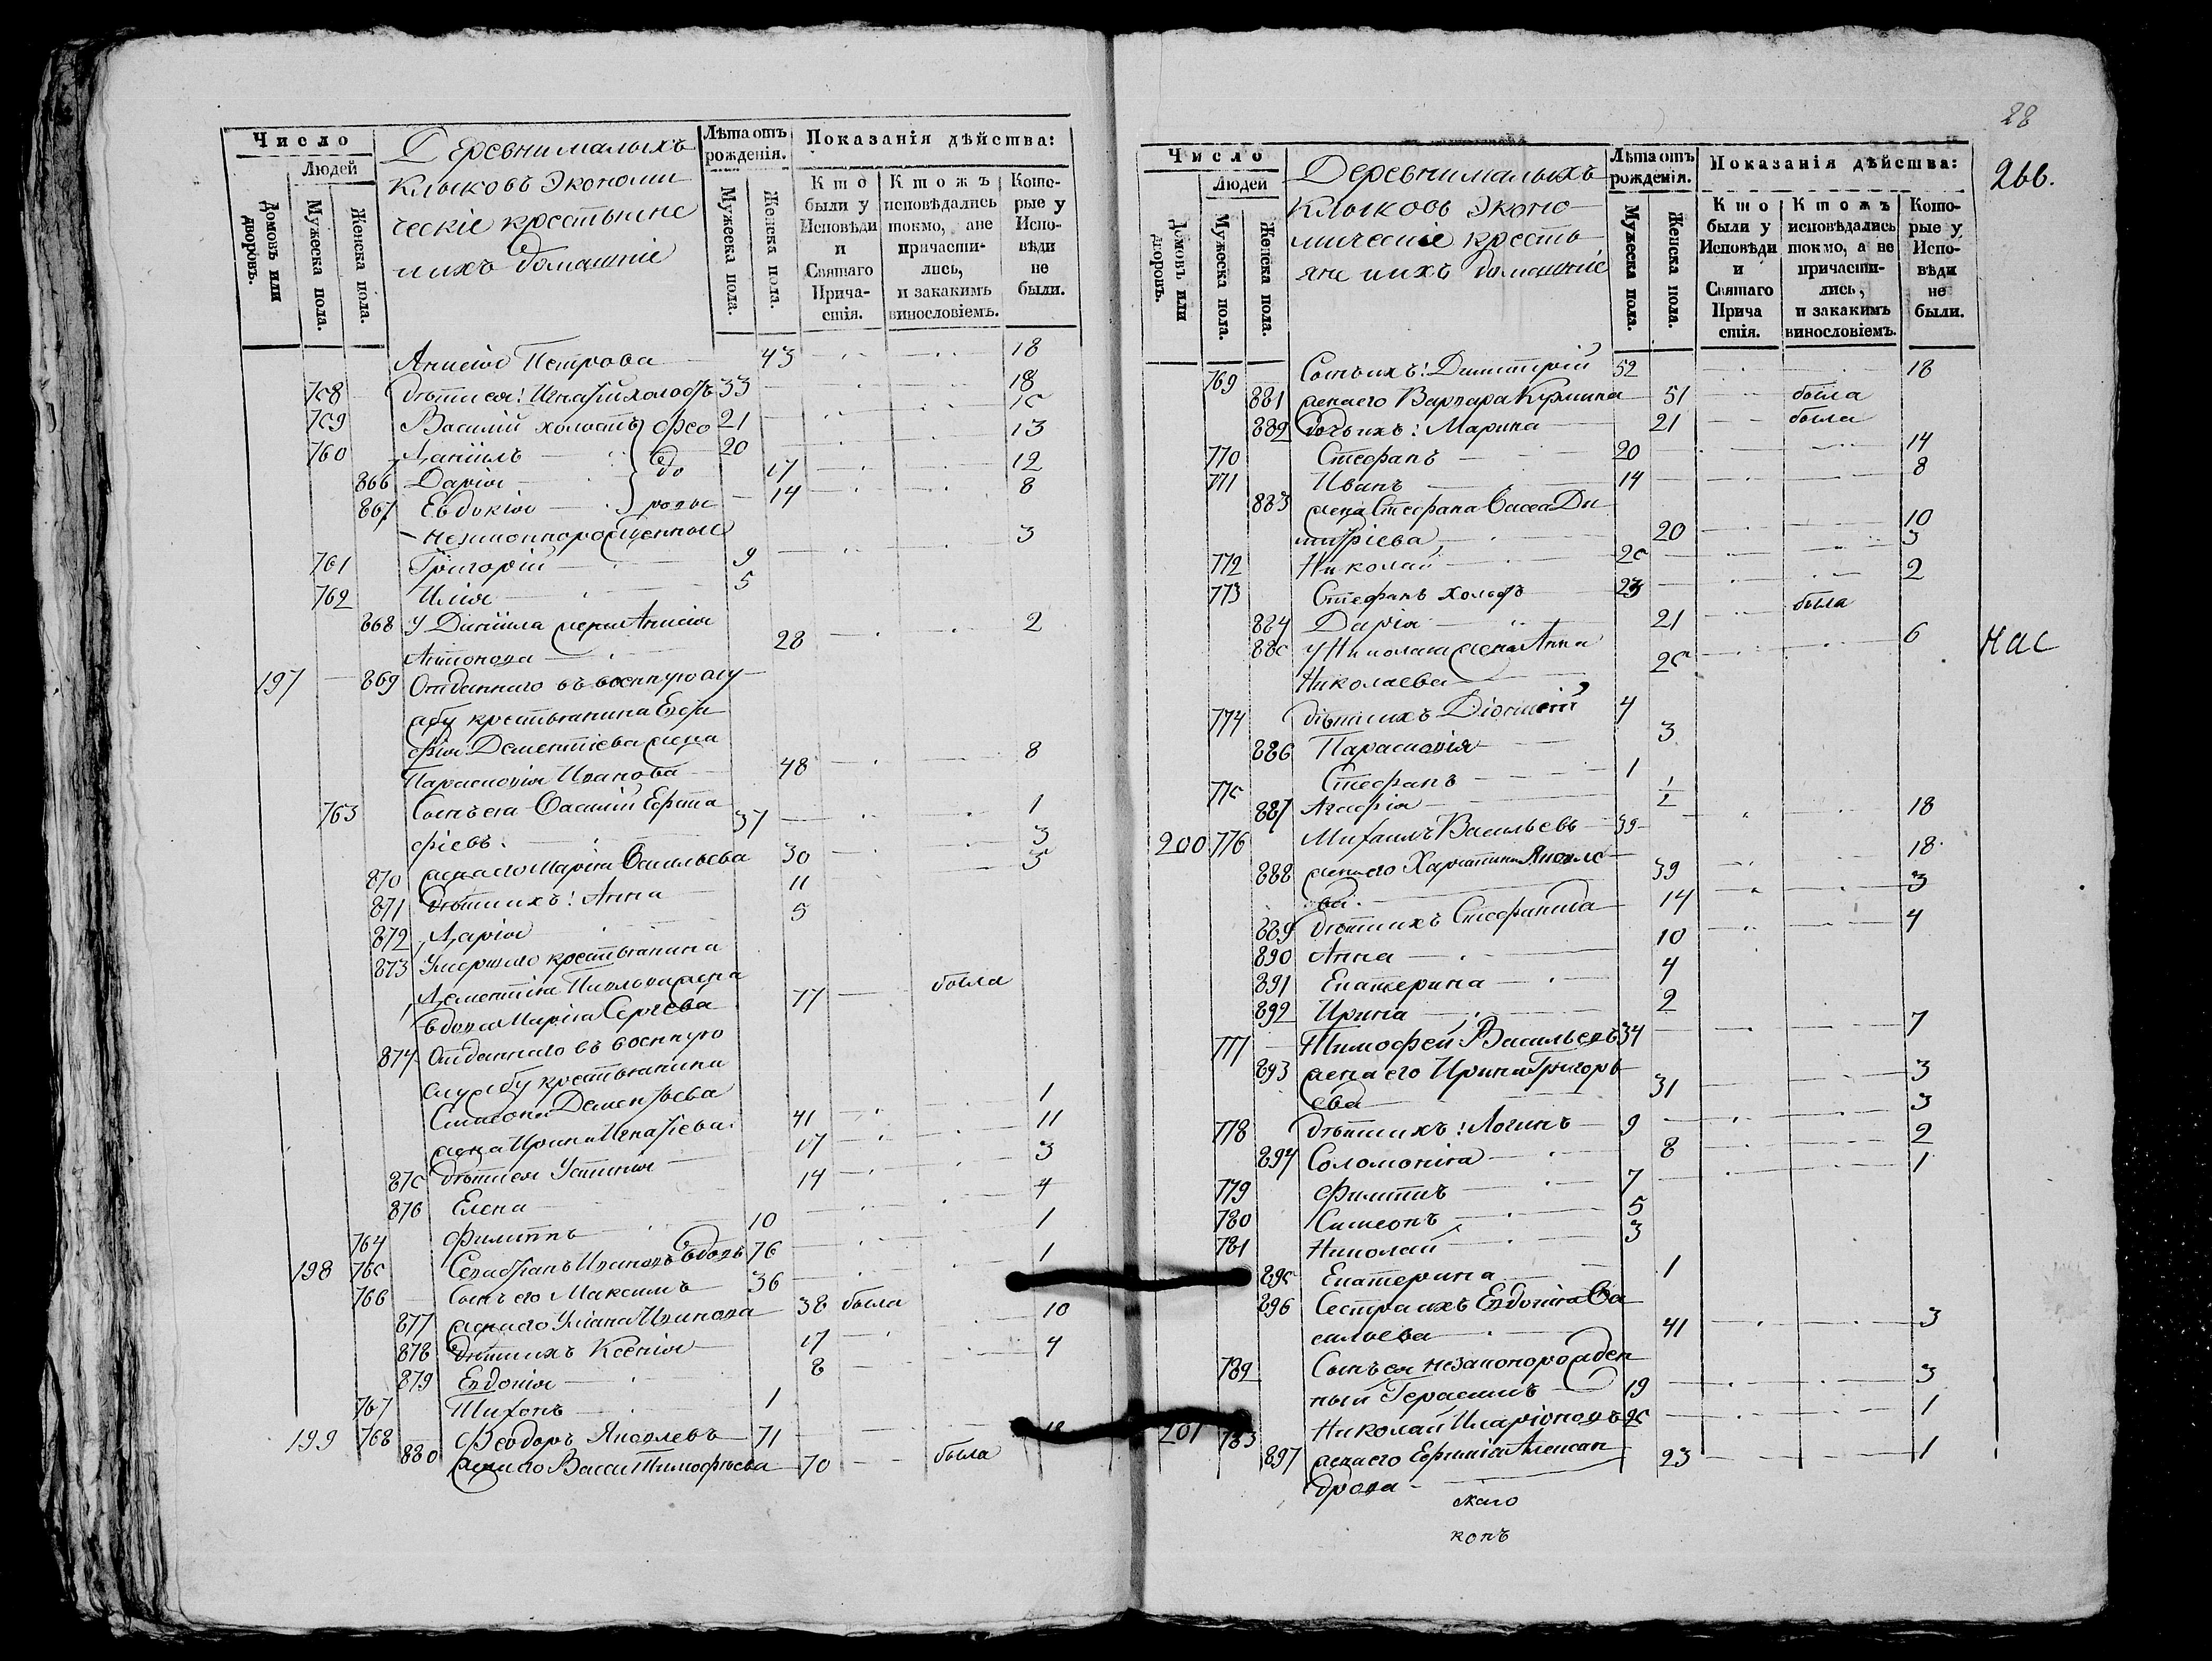 Число
Людей
Домовъ или дворовъ.
Мужеска пола.
Женска пола.
Деревни малыхъ
Клыковъ Экономи
ческіе крестьяне
иихъ домашніе
Лѣта отъ рожденія.
Мужеска пола.
Женска пола.
Показанія дѣйства:
Кто были у Исповѣди и Святаго Прича- стія.
Ктожъ исповѣдались токмо, а не причасти- лись, и закакимъ винословіемъ.
Кото- рые у Испо- вѣди не были.
Анисія Петрова 43 18
768 дѣтиея: Игнатій холостъ 33 18
769 Василій холостъ 21
760 Даніилъ 20 13
866 Дарія 17 12
867 Евдокія 14 8
незаконнорожденныя
761 Григорій 9 3
762 Илія 5
868 У Даніила жена Анисія
Антонова 28 2
197 869 Отданнаго въ военную слу
жбу крестьянина Евфи
фія Дементіева жена
Параскевія Иванова 48 8
763 Сынъ ея Василій
фіевъ. 37 1
870 жена его Марія Васильева 30 3
871 дѣтиихъ: Анна 11 3
872 Дарія 5
873 Умершаго крестьянина
Дементія жена
вдова Марія Сергѣева 77 была
874 Отданнаго въ военную
службу крестьянина
Симеона Дементьева
жена Ирина Игнатіева 41 1
875 дѣтиея Устинія 17 11
876 Елена 14 3
764 Филиппъ 10 4
198 765 Иванъ вдовъ 76 1
766 Сынъ его Максимъ 36 1
877 жена его Уліана Иванова 38 была
878 дѣтиихъ Ксенія 17 10
879 Евдокія 8 4
767 Тихонъ 1
199 768 Феодоръ Яковлевъ 71 18
880 жена его Васса Тимофѣева 70 была
28
266.
Число
Людей
Домовъ или дворовъ.
Мужеска пола.
Женска пола.
Деревни малыхъ
Клыковъ Эконо
мическіе кресть
яне иихъ домашніе
Лѣта отъ рожденія.
Мужеска пола.
Женска пола.
Показанія дѣйства:
Кто были у Исповѣди и Святаго Прича стія.
Ктожъ исповѣдались токмо, а не причасти- лись, и закакимъ винословіемъ.
Кото- рые у Испо- вѣди не были.
769 Сынъ ихъ: Димитрій 52 18
881 жена его Варвара Кузмина 51 была
882 дочь ихъ: Марина 21 была
770 Стефанъ 20 14
771 Иванъ 14 8
883 жена Стефана Васса Ди
митріева 20 10
772 Николай 25 3
773 Стефанъ холостъ 23 2
884 Дарія 21 была
885 У Николая жена Анна
Николаева 25 6
нас
774 дѣтиихъ Діонисій 4
886 Параскевія 3
775 Стефанъ 1
887 Агафія 1/2
200 776 Михаилъ Васильевъ 39 18
888 жена его Яковле
ва. 39 18
889 дѣтиихъ Стефанида 14 3
890 Анна 10 4
891 Екатерина 4
892 Ирина 2
777 Тимофей Васильевъ 34 7
893 жена его Ирина Григорь
ева 31 3
778 дѣтиихъ: Логинъ 9 3
894 Соломонія 8 2
779 Филиппъ 7 1
780 Симеонъ 5
781 Николай 3
895 Екатерина 1
896 Сестра ихъ Евдокія Ва
сильева 41 3
782 Сынъ ея незаконорожден
ный Герасимъ 19 3
201 783 Николай Иларіоновъ 25 1
897 жена его Евфимія Алексан
дрова 23 1
скаго
копъ